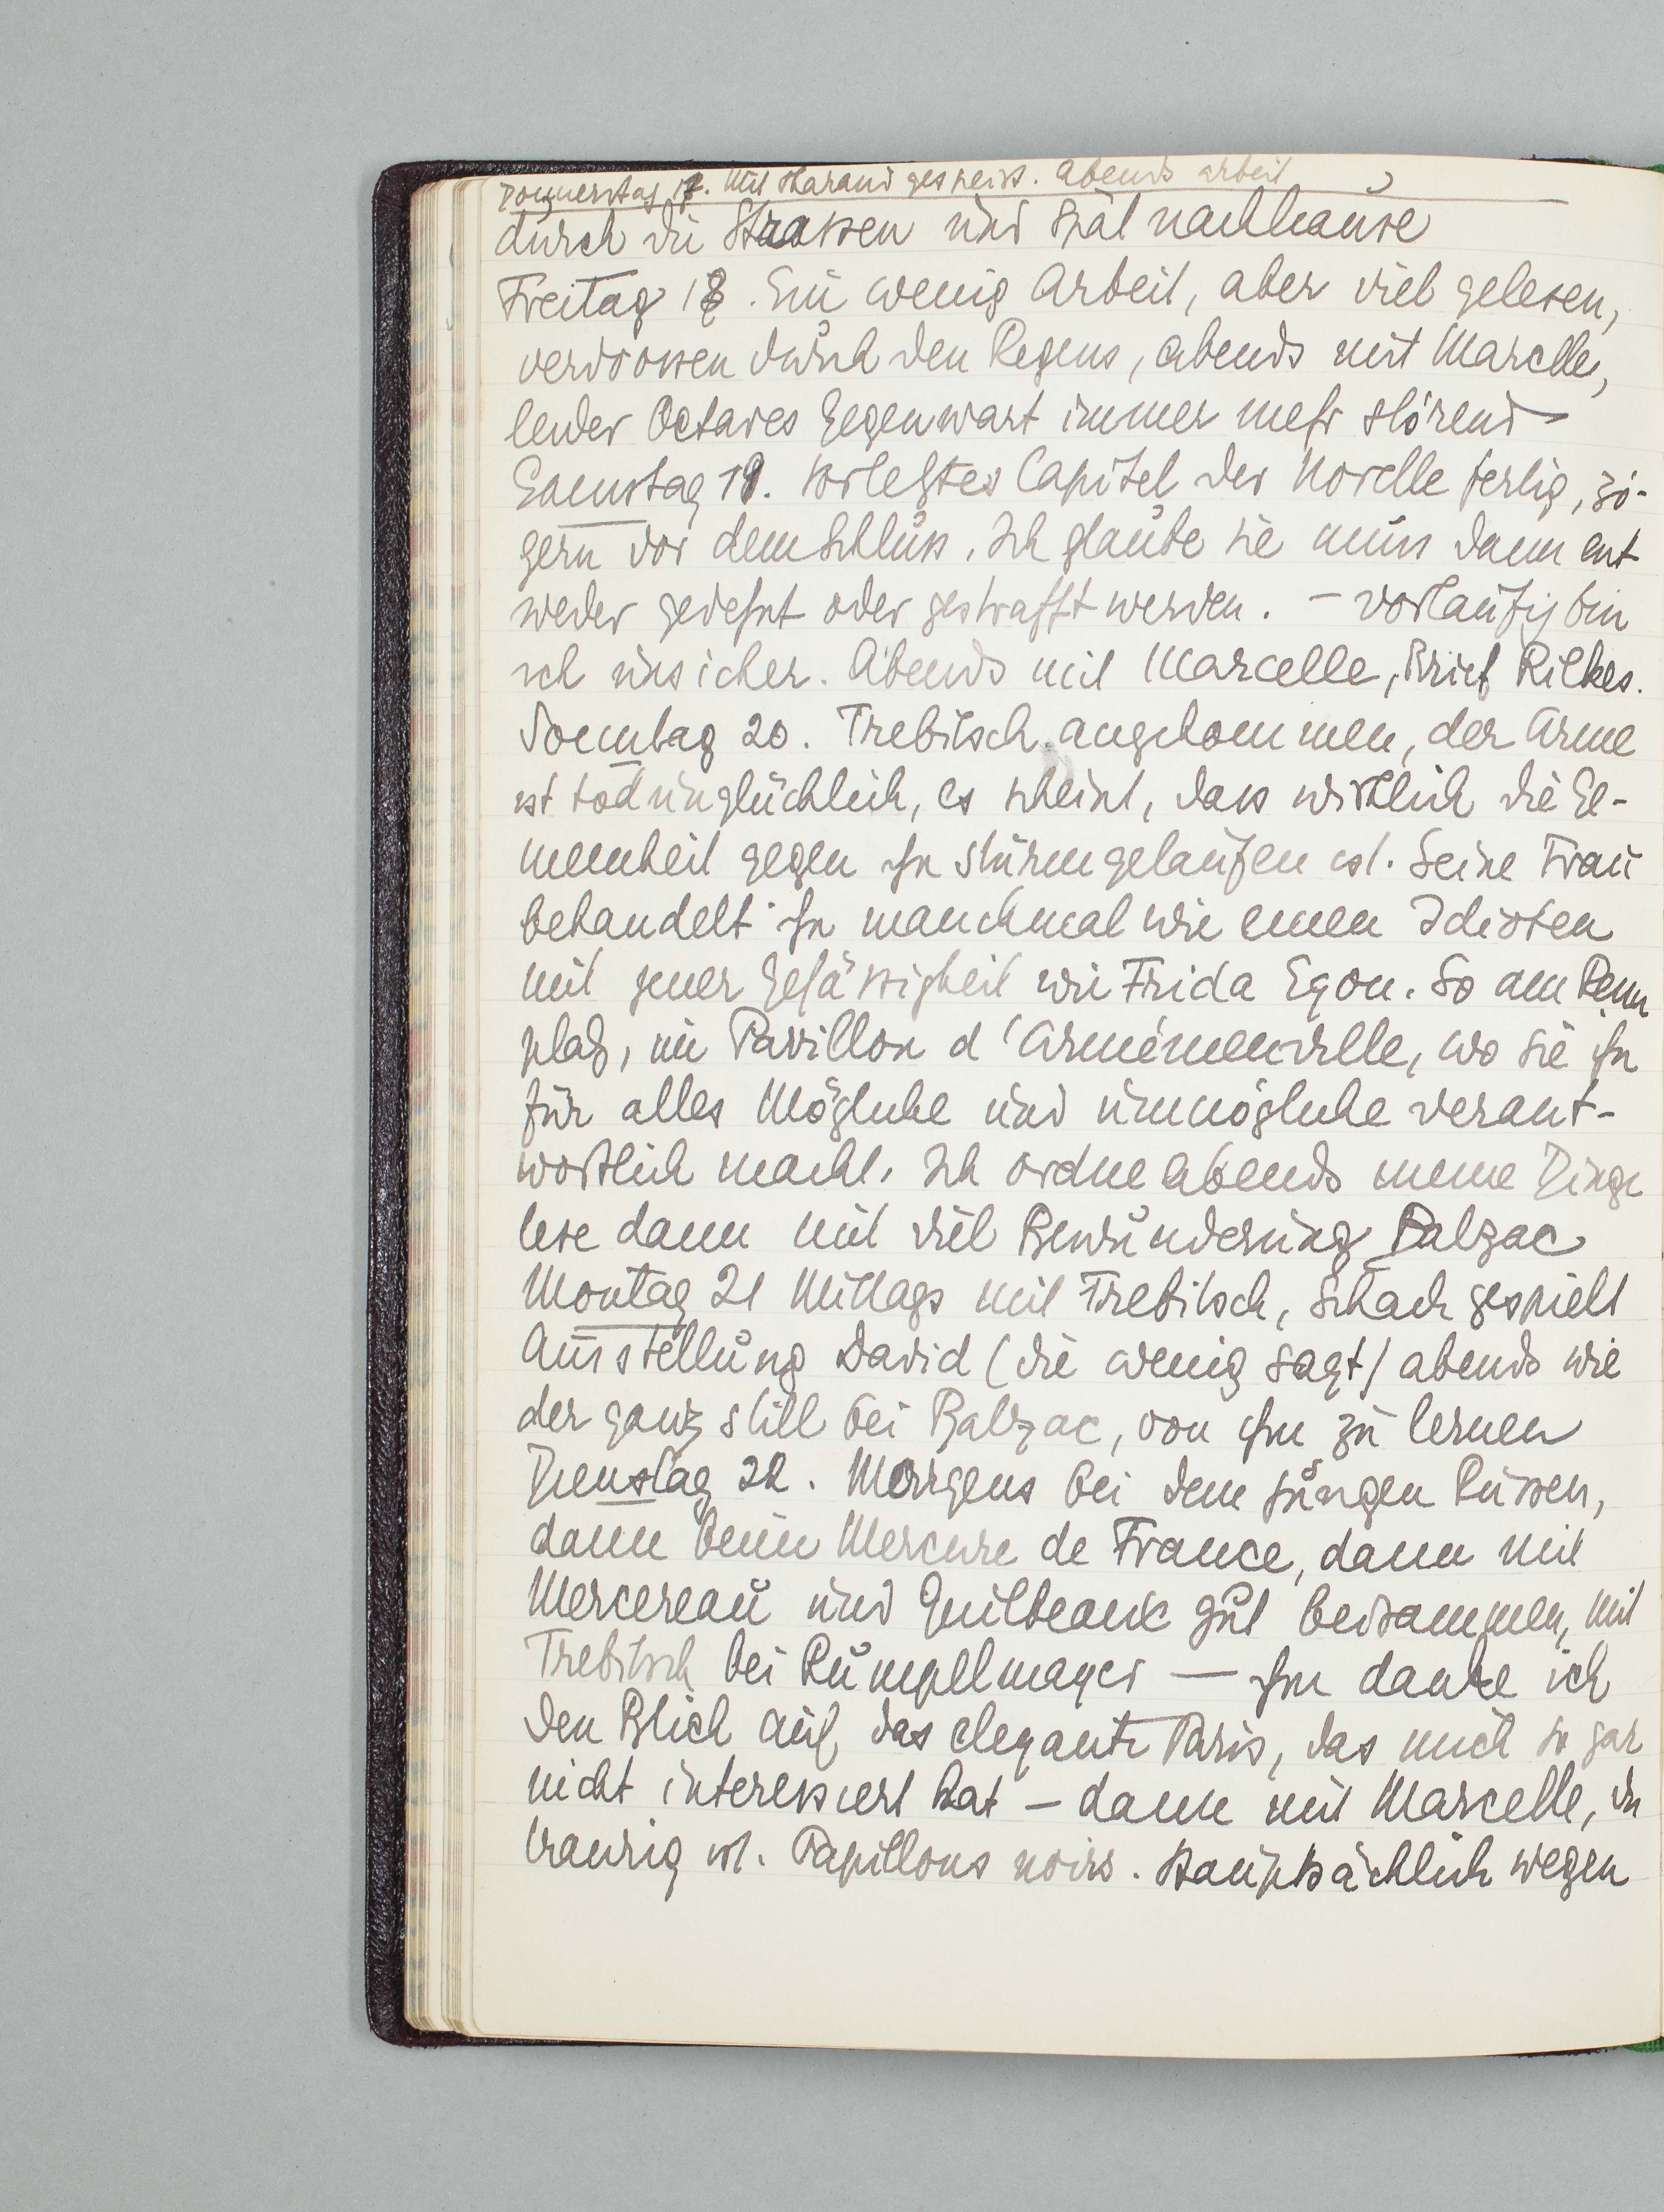 Donnerstag 17. Mit Harand gespeist. Abends arbeit
durch die Strassen und spät nachhause
Freitag 18. Ein wenig Arbeit, aber viel gelesen,
verdrossen durch den Regens, abends mit Marcelle,
leider Octaves Gegenwart immer mehr störend
Samstag 19. Vorletztes Capitel der Novelle fertig, zö-
gern vor dem Schluss. Ich glaube sie muss dann ent
weder gedehnt oder gestrafft werden. – vorläufig bin
ich unsicher. Abends mit Marcelle, Brief Rilkes.
Sonntag 20. Trebitsch angekommen, der Arme
ist todunglücklich, es scheint, dass wirklich die Ge-
meinheit gegen ihn sturmgelaufen ist. Seine Frau
behandelt ihn manchmal wie einen Idioten
mit jener Gehässigkeit wie Frida Egon. So am Renn
platz, im Pavillon d'Armenonville, wo sie ihn
für alles Mögliche und unmögliche verant-
wortlich macht. Ich ordne abends meine Dinge
lese dann mit viel Bewunderung Balzac
Montag 21 Mittags mit Trebitsch, Schach gespielt
Ausstellung David (die wenig sagt) abends wie
der ganz still bei Balzac, von ihm zu lernen
Dienstag 22. Morgens bei dem jungen Russen,
dann beim Mercure de France, dann mit
Mercereau und Guilbeaux gut beisammen, mit
Trebitsch bei Rumpelmayer — ihm danke ich
den Blick auf das elegante Paris, das mich so gar
nicht interessiert hat – dann mit Marcelle, die
traurig ist. Papillons noirs. Hauptsächlich wegen